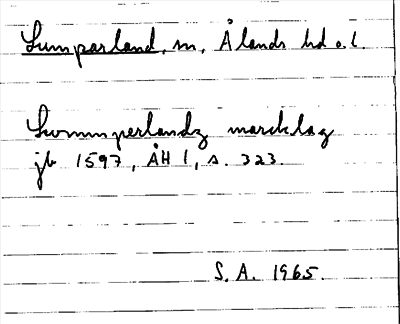 Lumparland, m, Ålands hd o. l.
Lwmmperlandz marcklag
jb 1597, ÅH 1, s. 323.
S. A. 1965.